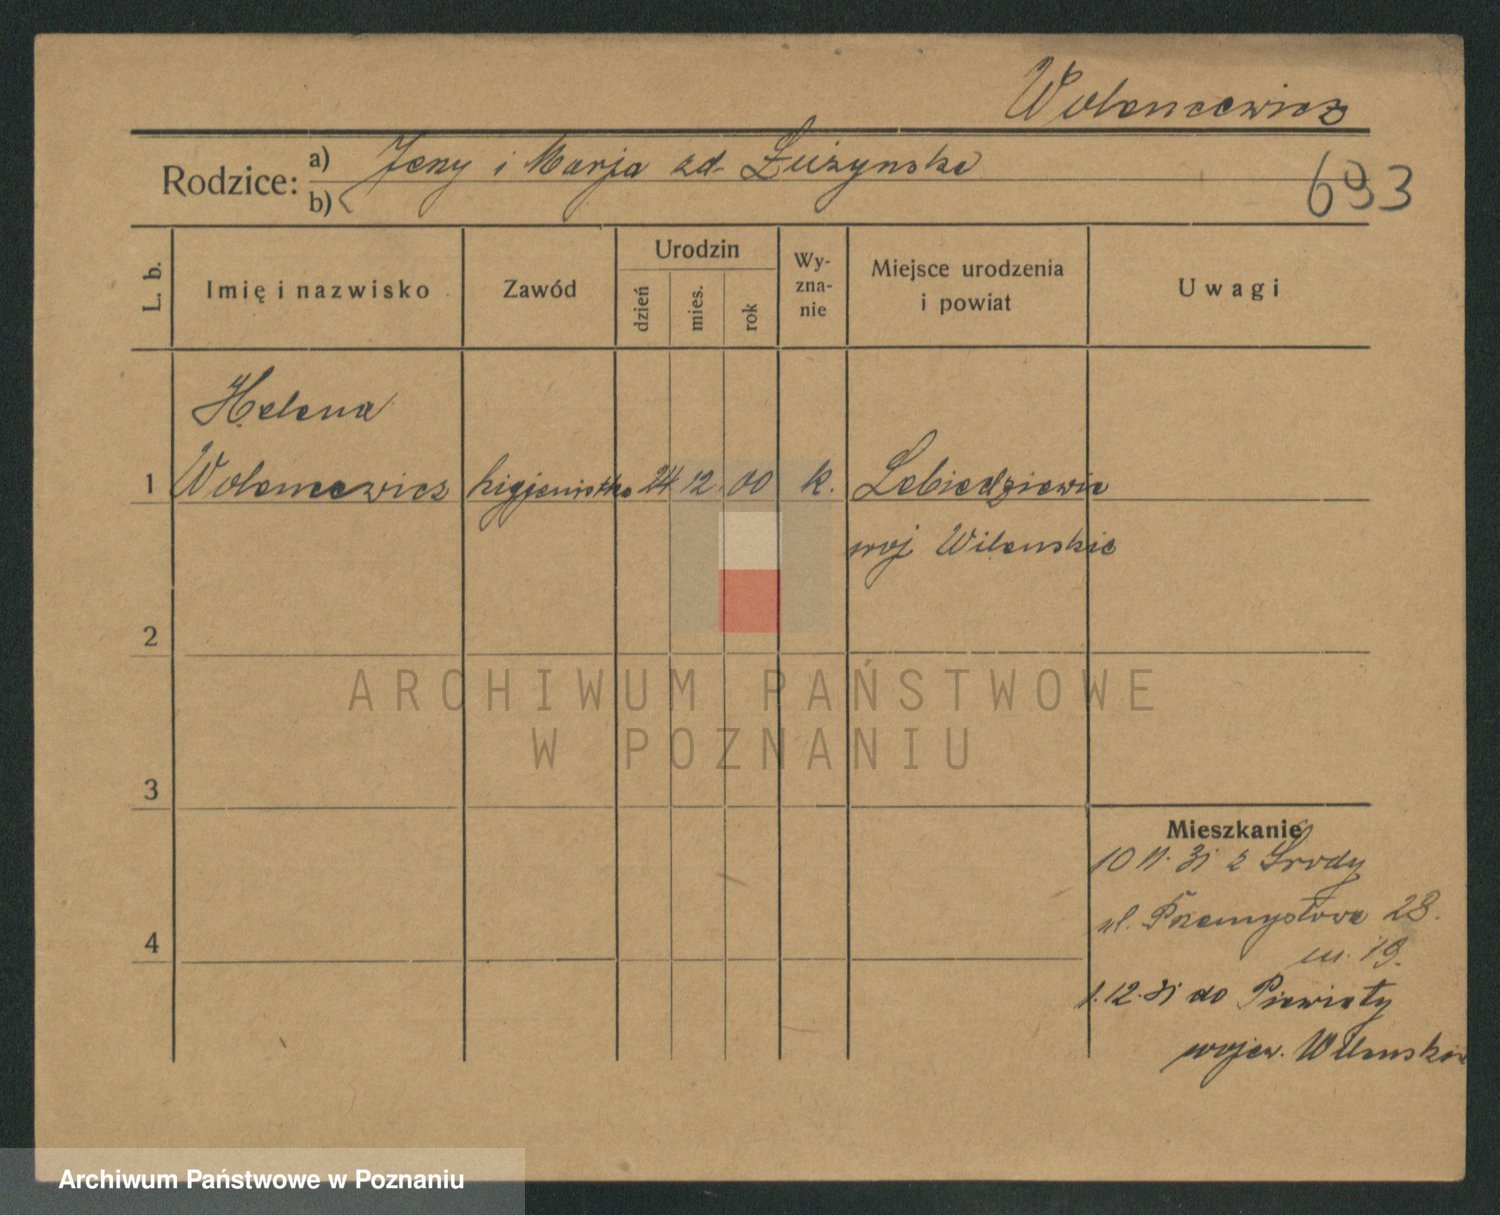 Wolencewicz
Rodzice: a) Jerzy i Marja zd. Łużyńska
b)
693
L. b.
Imię i nazwisko
Zawód
Urodzin
dzień
mies.
rok
Wy-
zna-
nie
Miejsce urodzenia
i powiat
Uwagi
Helena
1 Wolencewicz higjenistka 24 12 00 k. Lebiedziewie
woj Wilenskie
2
ARCHIWUM PAŃSTWOWE
W POZNANIU
3
Mieszkanie
10 11. 31 z Środy
ul. Przemysłowa 28.
m. 19.
4
1.12.31 do
wojew. Wilenskie
Archiwum Państwowe w Poznaniu